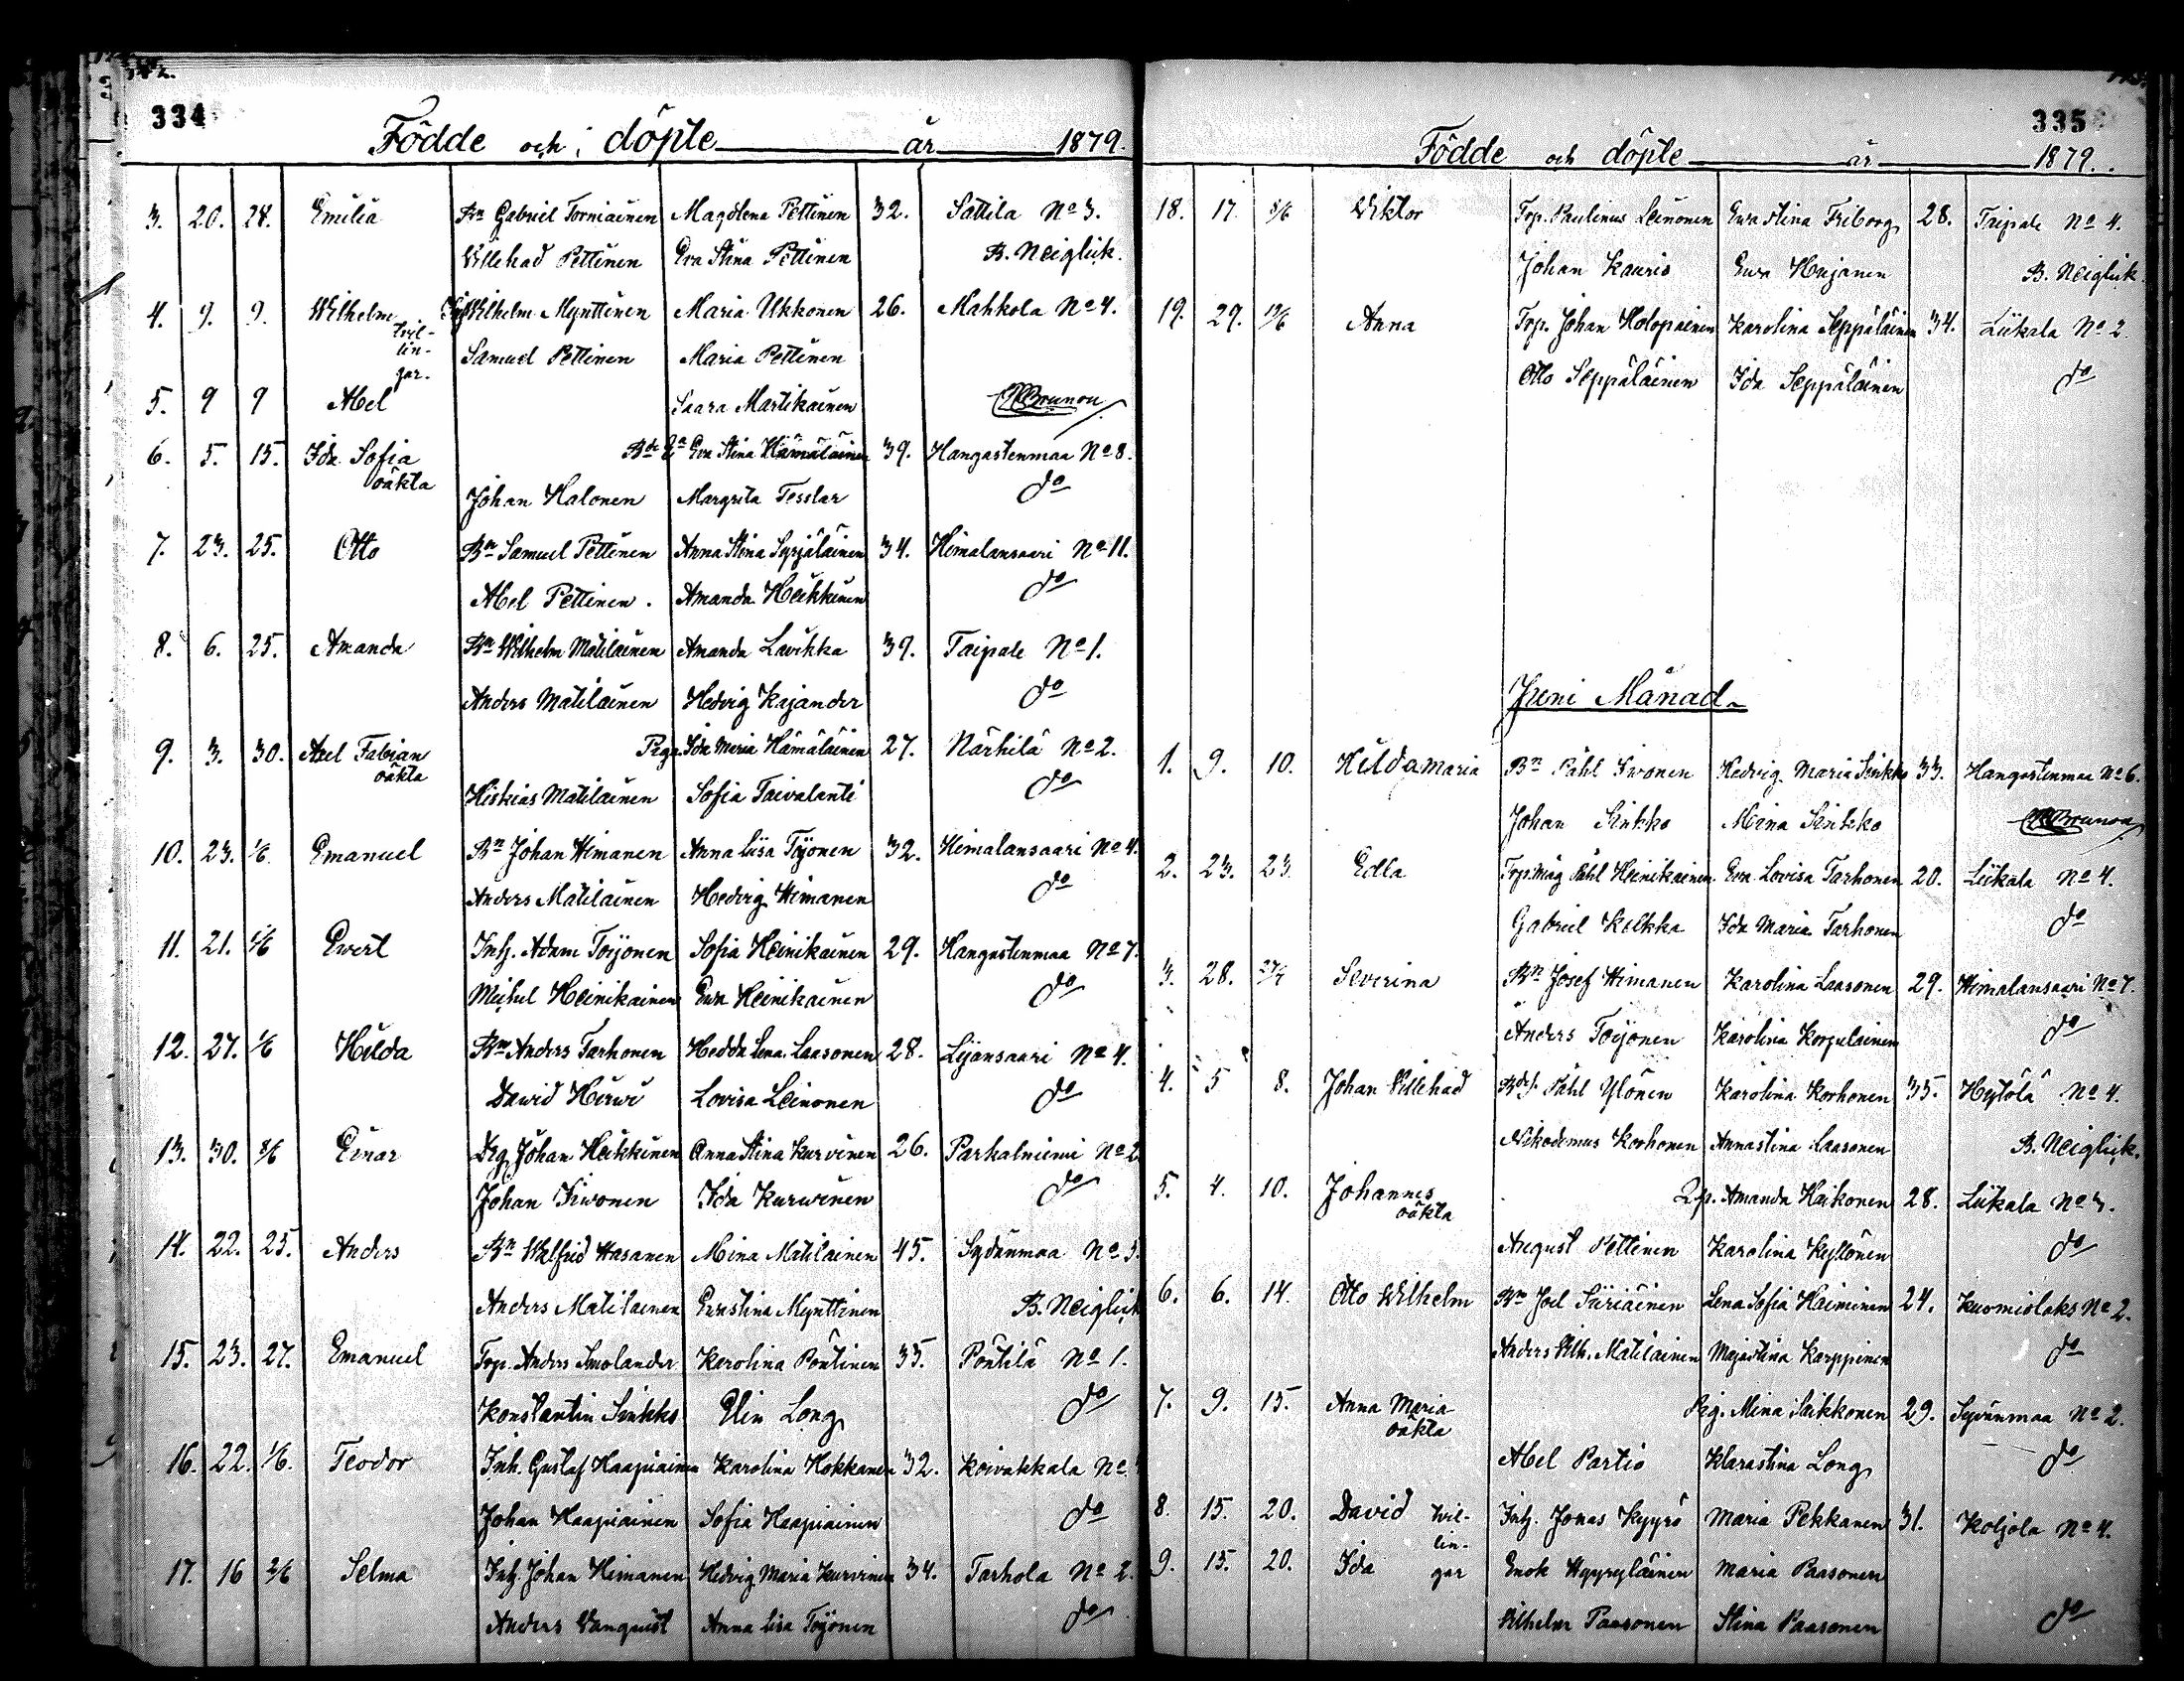 334
Födde och döpte år 1879.
3. 20. 28. Emilia Bn Gabriel Torniainen Magdlena Pettinen 32. Sattila No 3.
Villehad Pettinen Eva Stina Pettinen B. Neiglick.
4. 9. 9. Wilhelm Inh Wilhelm Mynttinen Maria Ukkonen 26. Mahkola No 4.
tvil-
lin-
gar.
Samuel Pettinen Maria Pettinen
5. 9 9 Abel Saara Martikainen Brunou
6. 5. 15. Ida Sofia Eva Stina Hämäläinen 39. Hangastenmaa No 8.
oäkta
Johan Halonen Margreta Tesslar do
7. 23. 25. Otto Bn Samuel Pettinen Anna Stina Syrjäläinen 34. Himalansaari No 11.
Abel Pettinen. Amanda Heikkinen do
8. 6. 25. Amanda Bn Wilhelm Matilainen Amanda Lavikka 39. Taipale No 1.
Anders Matilainen Hedvig Kajander do
9. 3. 30. Axel Fabian Pig. Ida Maria Hämäläinen 27. Närhilä No 2.
oäkta
Hiskias Matilainen Sofia Taivalanti do
10. 23. 1/6. Emanuel Bn Johan Himanen Anna Lisa Toijonen 32. Himalansaari No 4.
Anders Matilainen Hedvig Himanen do
11. 21. 1/6 Evert Inh. Adam Toijonen Sofia Heinikainen 29. Hangastenmaa No 7.
Michel Heinikainen Eva Heinikainen do
12. 27. 1/6 Hilda Bn Anders Tarhonen Hedda Lena Laasonen 28. Lijansaari No 4.
David Hirwi Lovisa Leinonen do
13. 30. 8/6 Einar Drg. Johan Heikkinen Anna Stina Kurvinen 26. Parkalniemi No 2
Johan Iivonen Ida Kurvinen do
14. 22. 25. Anders Bn Walfrid Hasanen Mina Matilainen 45. Sydänmaa No 3.
Anders Matilainen Evastina Mynttinen B. Neiglick
15. 23. 27. Emanuel Torp. Anders Smolander Karolina Pöntinen 33. Pöntilä No 1.
Konstantin Sinkko Elin Long do
16. 22. 1/6. Teodor Inh. Gustaf Haapiainen Karolina Hokkanen 32. Koivakkala No
Johan Haapiainen Sofia Haapiainen do
17. 16 2/6 Selma Inh. Johan Himanen Hedvig Maria Kurvinen 34. Tarhola No 2.
Anders Vanquist Anna Lisa Toijonen do
335
Födde och döpte år 1879.
18. 17. 8/6 Viktor Torp. Paulinus Leinonen Eva Stina Friborg 28. Taipale No 4.
Johan Kauris Eva B. Neiglick.
19. 29. Anna Torp. Johan Holopainen Karolina Seppäläinen 34. Liikala No 2.
Otto Seppäläinen Ida Seppäläinen do
Juni Månad
1. 9. 10. Hilda Maria Bn Påhl Iivonen Hedvig Maria Sinkko 33. Hangastenmaa No 6.
Johan Sinkko Mina Sinkko Brunou
2. 23. 23. Edla Torp.måg Påhl Heinikainen Eva Lovisa Tarhonen 20. Liikala No 4.
Gabriel Kelkka Ida Maria Tarhonen do
3. 28. Severina Bn Josef Himanen Karolina Laasonen 29. Himalansaari No 7.
Anders Toijonen Karolina Korpelainen do
4. 5 8. Johan Villehad Påhl Ylönen Karolina Korhonen 35. Heylölä No 4.
Nikodemus Korhonen Annastina Laasonen B. Neiglick.
5. 4. 10. Johannes Amanda Haikonen 28. Liikala No 3.
oäkta
August Pettinen Karolina Kyllönen do
6. 6. 14. Otto Wilhelm Bn Joel Siiriäinen Lena Sofia Haiminen 24. Kuomiolaks No 2.
Anders Vilh. Matilainen Majastina Karppinen do
7. 9. 15. Anna Maria Pig. Mina Saikkonen 29. Sydänmaa No 2.
oäkta
Abel Partio Klarastina Long do
8. 15. 20. David tvil- Inh. Jonas Kyyrö Maria Pekkanen 31. Koljola No 4.
lin-
9. 15. 20. Ida gar Enok Hyyryläinen Maria Paasonen
Vilhelm Paasonen Stina Paasonen do